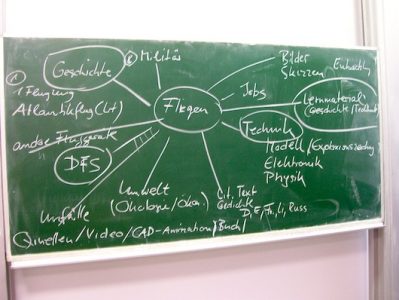 Geschichte
① 1 Flugzeug
Atlantikflug (Lit)
andere Fluggeräte
DFS
Unfälle
Quellen/Video/CAD-Animation/Buch/
Militär
Fliegen
Umwelt
(Ökologie/Ökon.)
Lit. Text
Gedichte
D, E, Fr, Li, Russ
Bilder
Skizzen
Jobs
Lernmaterial
Geschichte/
Technik
Modell/Explosionszeichng
Elektronik
Physik